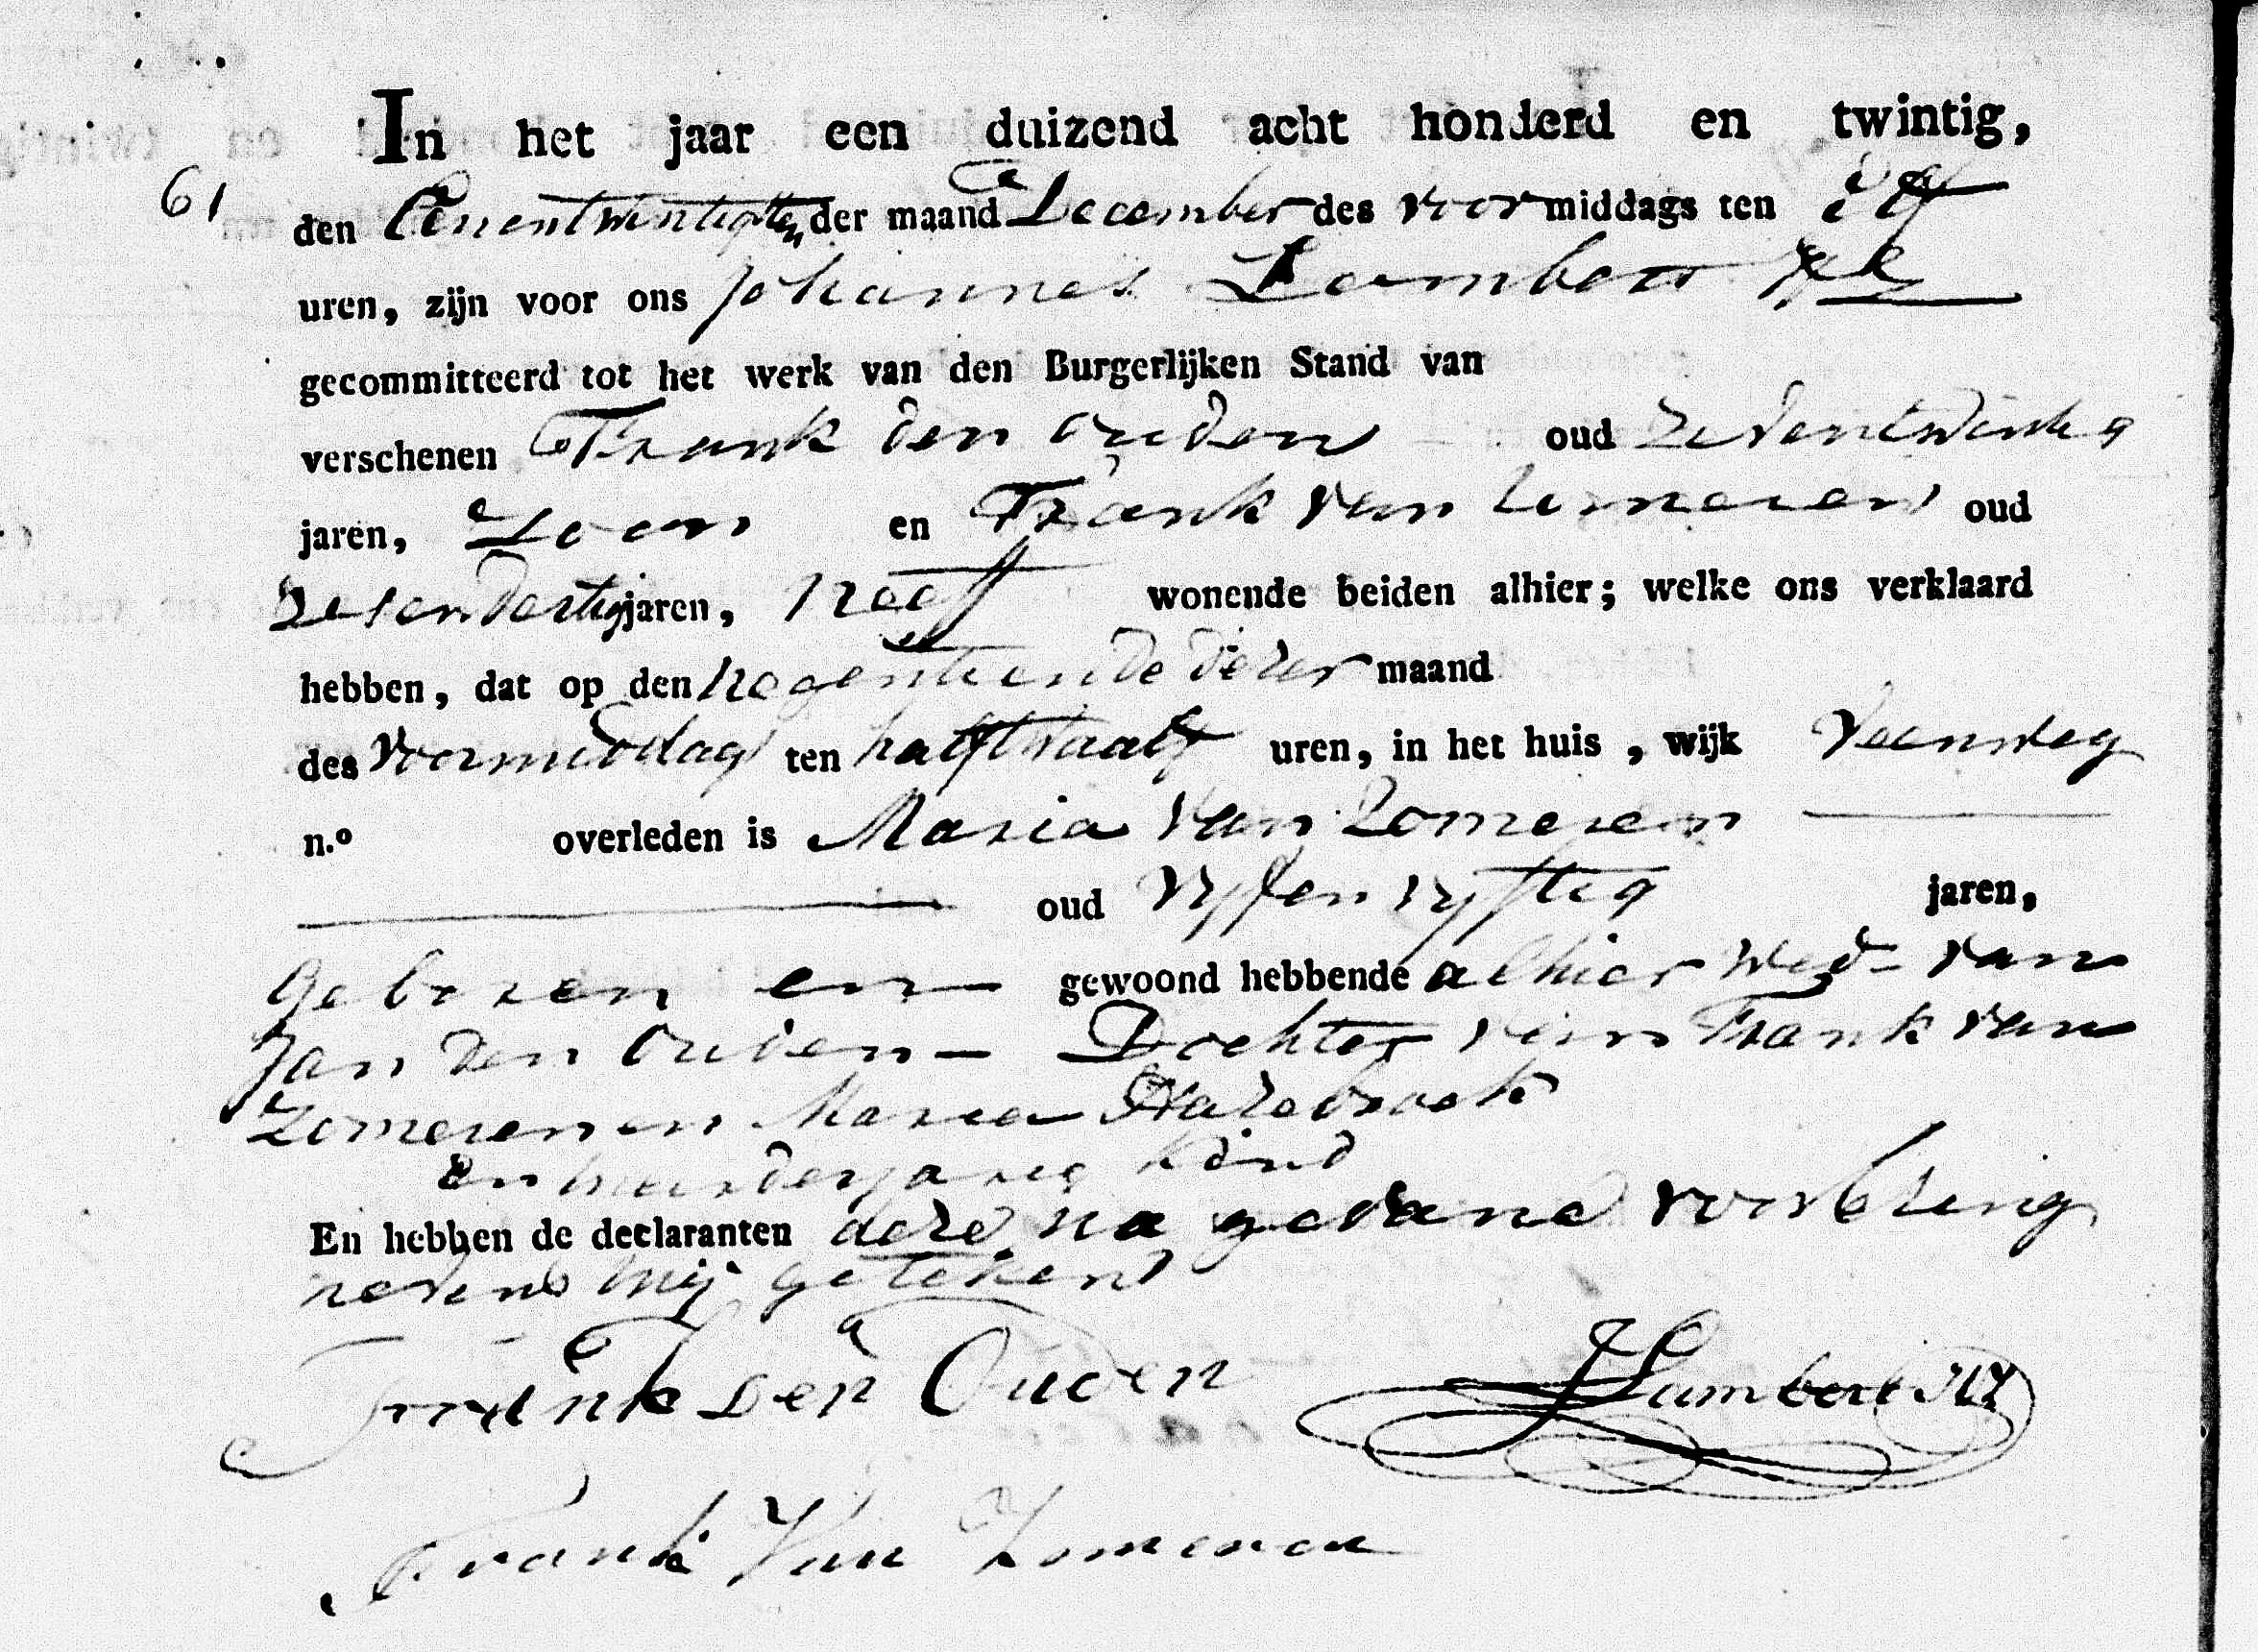 In het jaar een duizend acht honderd en twintig,
61
den Eenentwintigsten der maand December des voormiddags ten elf
uren, zijn voor ons Johannes Lambert
gecommitteerd tot het werk van den Burgerlijken Stand van
verschenen Frank den ouden oud zeventwintig
jaren, Zoon en Frank van Zomeren oud
zesendertig jaren, neef wonende beiden alhier; welke ons verklaard
hebben, dat op den negentiende dezer maand
des voormiddag ten half twaalf uren, in het huis, wijk Veenweg
n.o overleden is Maria van Zomeren
oud vyfenvyftig jaren,
geboren en gewoond hebbende alhier Wed. van
Jan den Ouden - Dochter van Frank van
Zomeren en Maria Hazebroek
een minderjarig kind
En hebben de declaranten deze na gedane voorlezing
nevens mij getekend
Frank Den Ouden
JLambert
Frank Van Zomeren